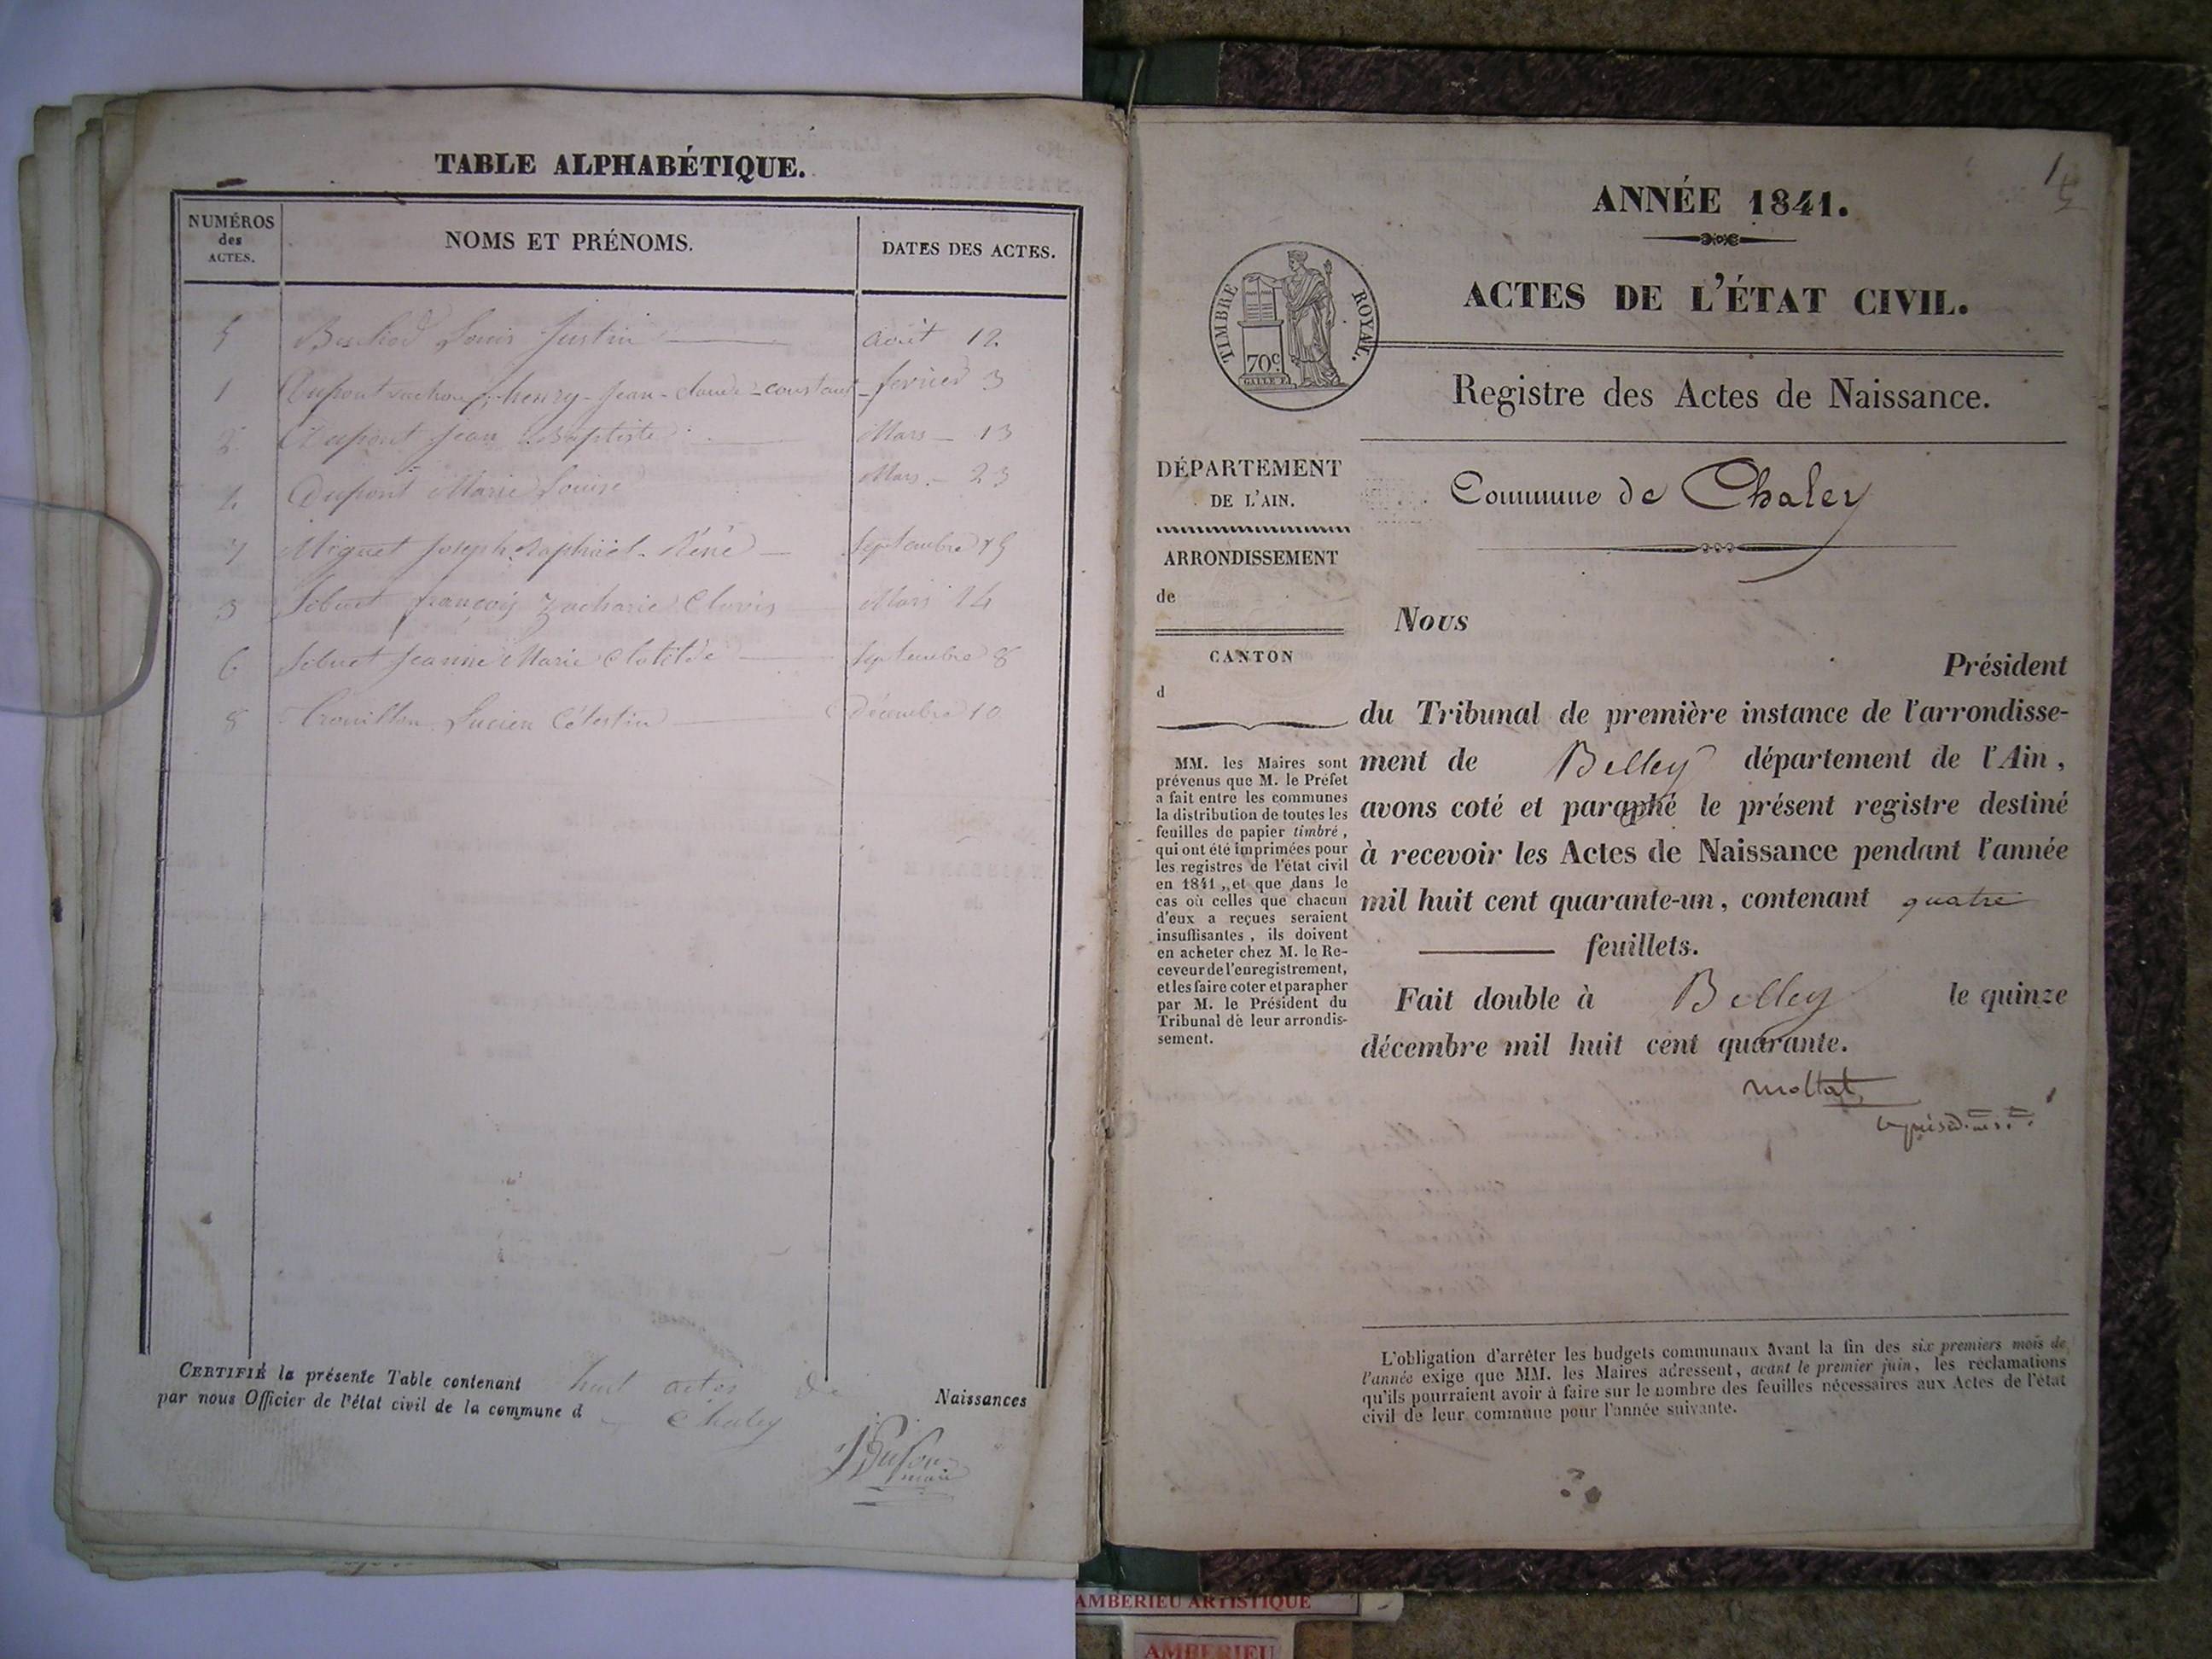 TABLE ALPHABÉTIQUE.
NUMÉROS des ACTES.
NOMS ET PRÉNOMS.
DATES DES ACTES.
5 Louis Justin août 12
1 Dupont henry-Jean-claude-constant fevrier 3
2 Dupont Jean Baptiste Mars 13
4 Dupont Marie Louise Mars 23
7 Miguet Joseph Raphaël René Septembre 15
3 Sibuet françois Zacharie Clovis Mars 14
6 Sibuet Jeanne Marie Clotilde Septembre 8
8 Trouillon Lucien Célestin Décembre 10
CERTIFIÉ la présente Table contenant huit actes de Naissances
par nous Officier de l'état civil de la commune d Chaley
maire
ANNÉE 1841.
TIMBRE ROYAL.
70c
ACTES DE L'ÉTAT CIVIL.
Registre des Actes de Naissance.
Commune de Chaley
DÉPARTEMENT
DE L'AIN.
ARRONDISSEMENT
de
CANTON
d
MM. les Maires sont
prévenus que M. le Préfet
a fait entre les communes
la distribution de toutes les
feuilles de papier timbré,
qui ont été imprimées pour
les registres de l'état civil
en 1841, et que dans le
cas où celles que chacun
d'eux a reçues seraient
insuffisantes, ils doivent
en acheter chez M. le Re-
ceveur de l'enregistrement,
et les faire coter et parapher
par M. le Président du
Tribunal de leur arrondis-
sement.
Nous
Président
du Tribunal de première instance de l'arrondisse-
ment de Belley département de l'Ain,
avons coté et paraphé le présent registre destiné
à recevoir les Actes de Naissance pendant l'année
mil huit cent quarante-un, contenant quatre
feuillets.
Fait double à Belley le quinze
décembre mil huit cent quarante.
mollat
L'obligation d'arrêter les budgets communaux avant la fin des six premiers mois de
l'année exige que MM. les Maires adressent, avant le premier juin, les réclamations
qu'ils pourraient avoir à faire sur le nombre des feuilles nécessaires aux Actes de l'état
civil de leur commune pour l'année suivante.
AMBERIEU ARTISTIQUE
AMBERIEU